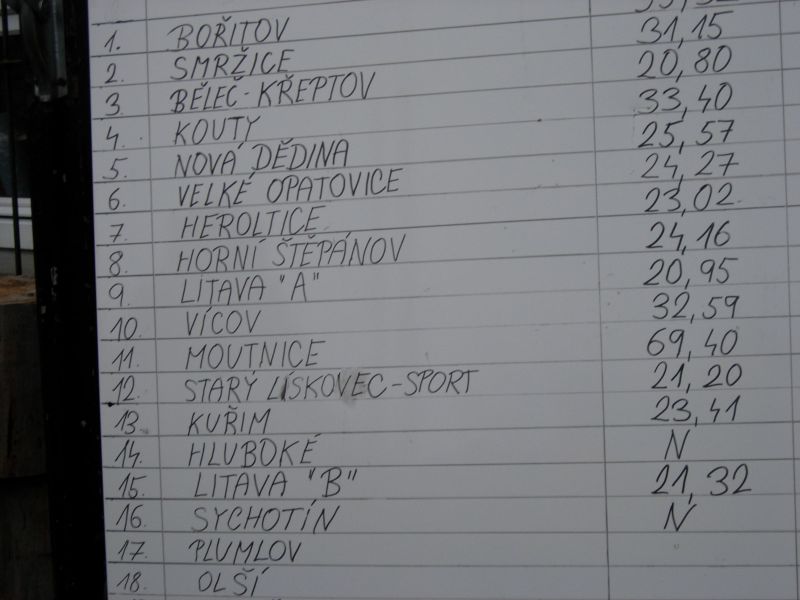 1. BOŘITOV
2. SMRŽICE 31,15
3. BĚLEČ-KŘEPTOV 20,80
4. KOUTY 33,40
5. NOVÁ DĚDINA 25,57
6. VELKÉ OPATOVICE 24,27
7. HEROLTICE 23,02
8. HORNÍ ŠTĚPÁNOV 24,16
9. LITAVA "A" 20,95
10. VÍCOV 32,59
11. MOUTNICE 69,40
12. STARÝ LÍSKOVEC-SPORT 21,20
13. KUŘIM 23,41
14. HLUBOKÉ N
15. LITAVA "B" 21,32
16. SYCHOTÍN N
17. PLUMLOV
18. OLŠÍ